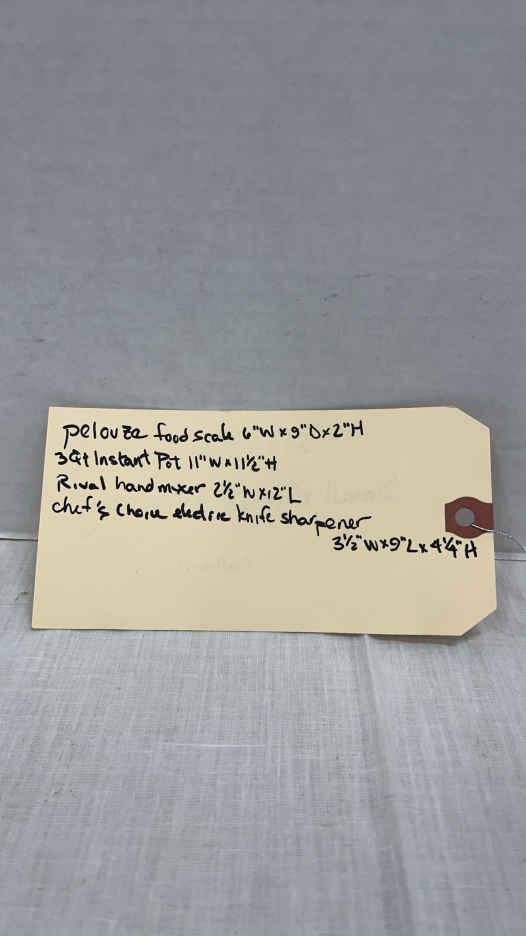 pelouze food scale 6"W x 9"D x 2"H
3Qt Instant Pot 11"W x 11½"H
Rival hand mixer 2½"W x 12"L
chef's choice electric knife sharpener
3½"W x 9"L x 4¼"H